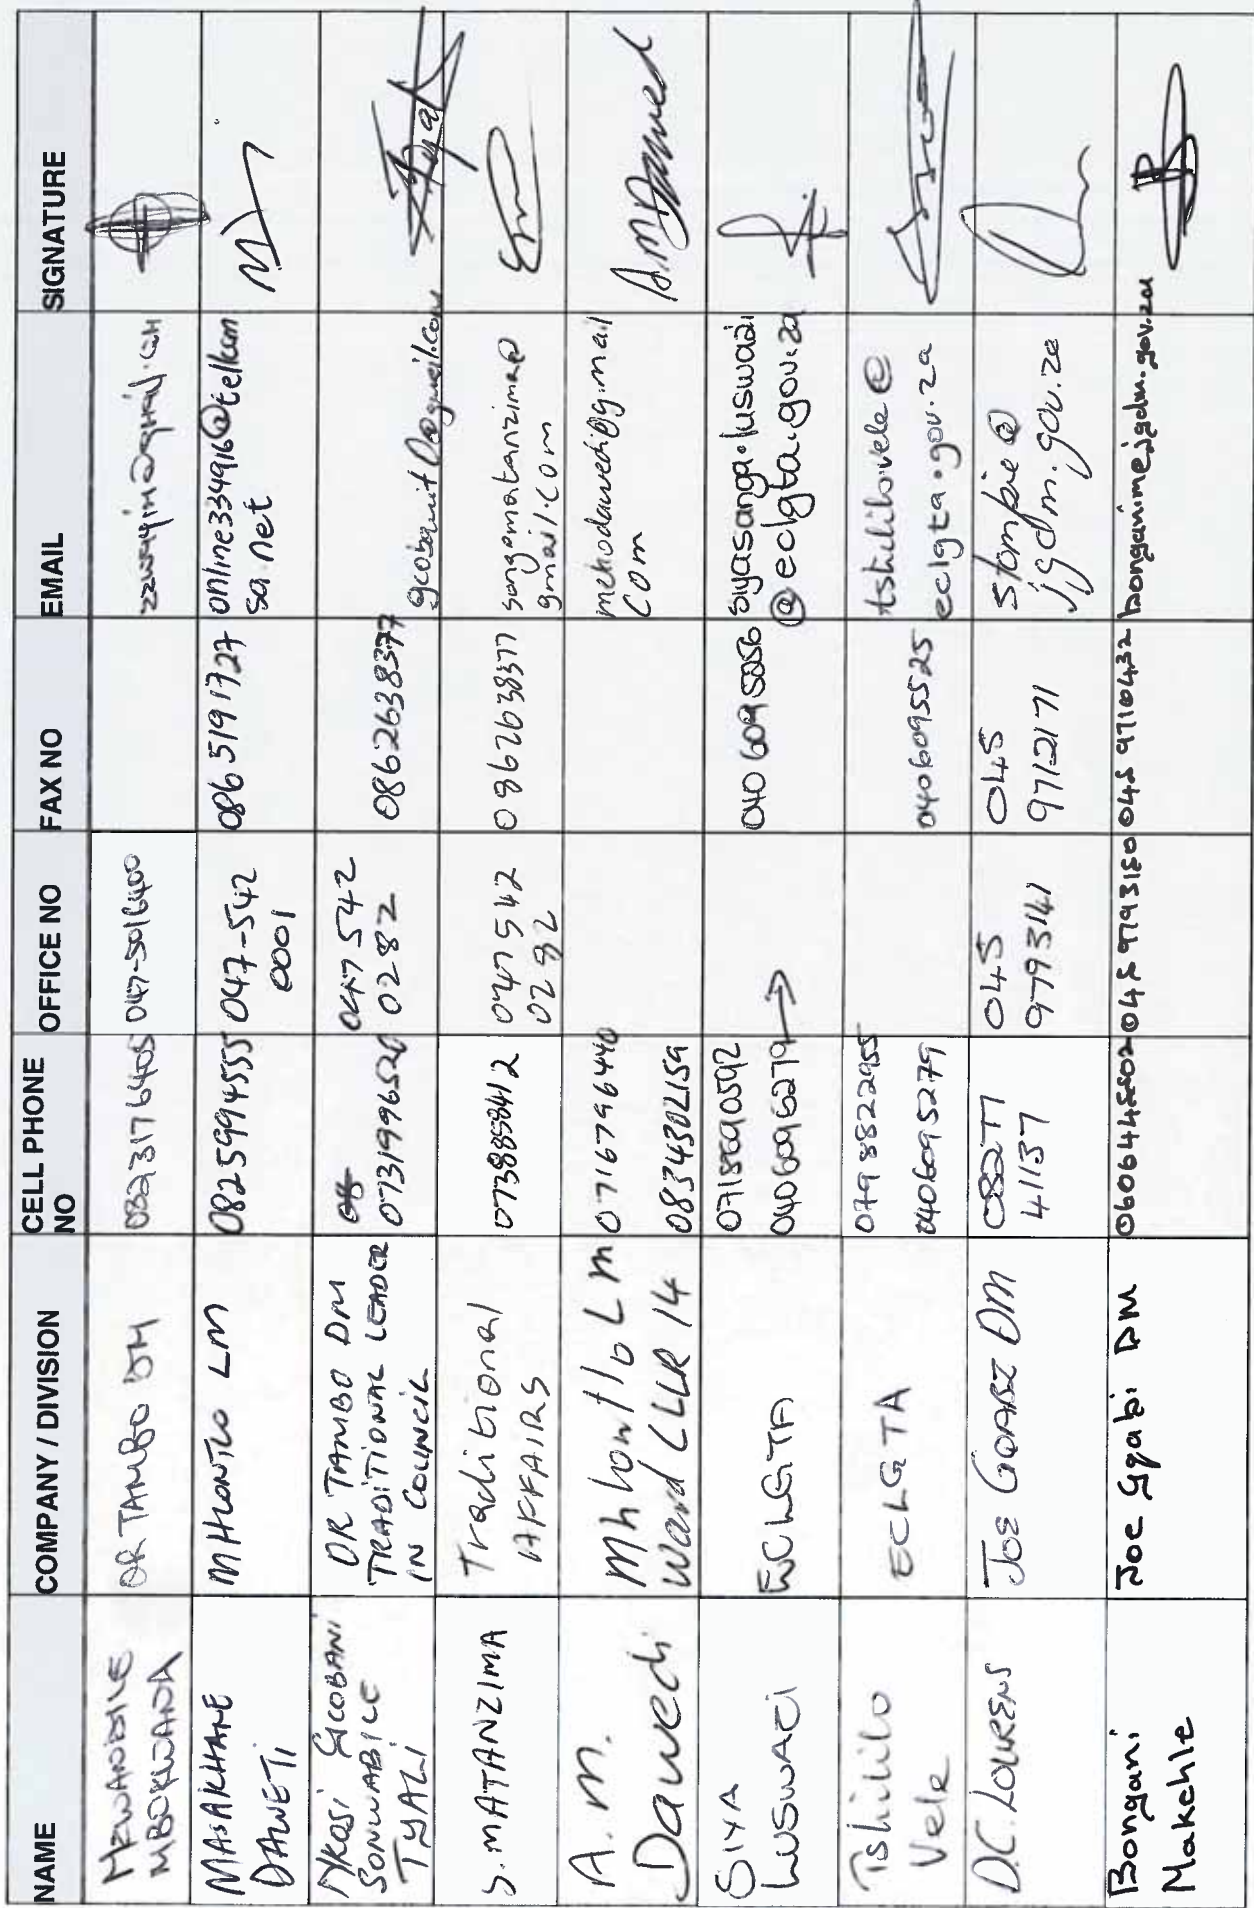 NAME
COMPANY / DIVISION
CELL PHONE NO
OFFICE NO
FAX NO
EMAIL
SIGNATURE
MZWANDILE
MBOKWANA
OR TAMBO DM
0823176405
047-5016400
MASAKHANE
DAWETI
MHLONTLO LM
0825994555
047-542
0001
0865191727
online334916@telkom
sa.net
NKOSI GCOBANI
SONWABILE
TYALI
OR TAMBO DM
TRADITIONAL LEADER
IN COUNCIL
0731996520
047 542
0282
0862638377
S. MATANZIMA
Traditional
AFFAIRS
0738858412
047 542
0282
0862638377
sangomatanzima@
gmail.com
A.M.
Dawedi
Mhlontlo LM
Ward CLLR 14
0716796440
0834302159
com
A.M Dawedi
SIYA
LUSWAZI
ECLGTA
0718690592
0406095279
040 6095256
siyasanga.luswazi
@eclgta.gov.za
Tshililo
Vele
ECLGTA
0798822955
0406095279
0406095525
tshililovele@
eclgta.gov.za
D.C. LOURENS
JOE GQABI DM
08277
41137
045
9793141
045
9712171
stompie@
jgdm.gov.za
Bongani
Makehle
Joe Gqabi DM
0606445502
045 9793180
045 9710432